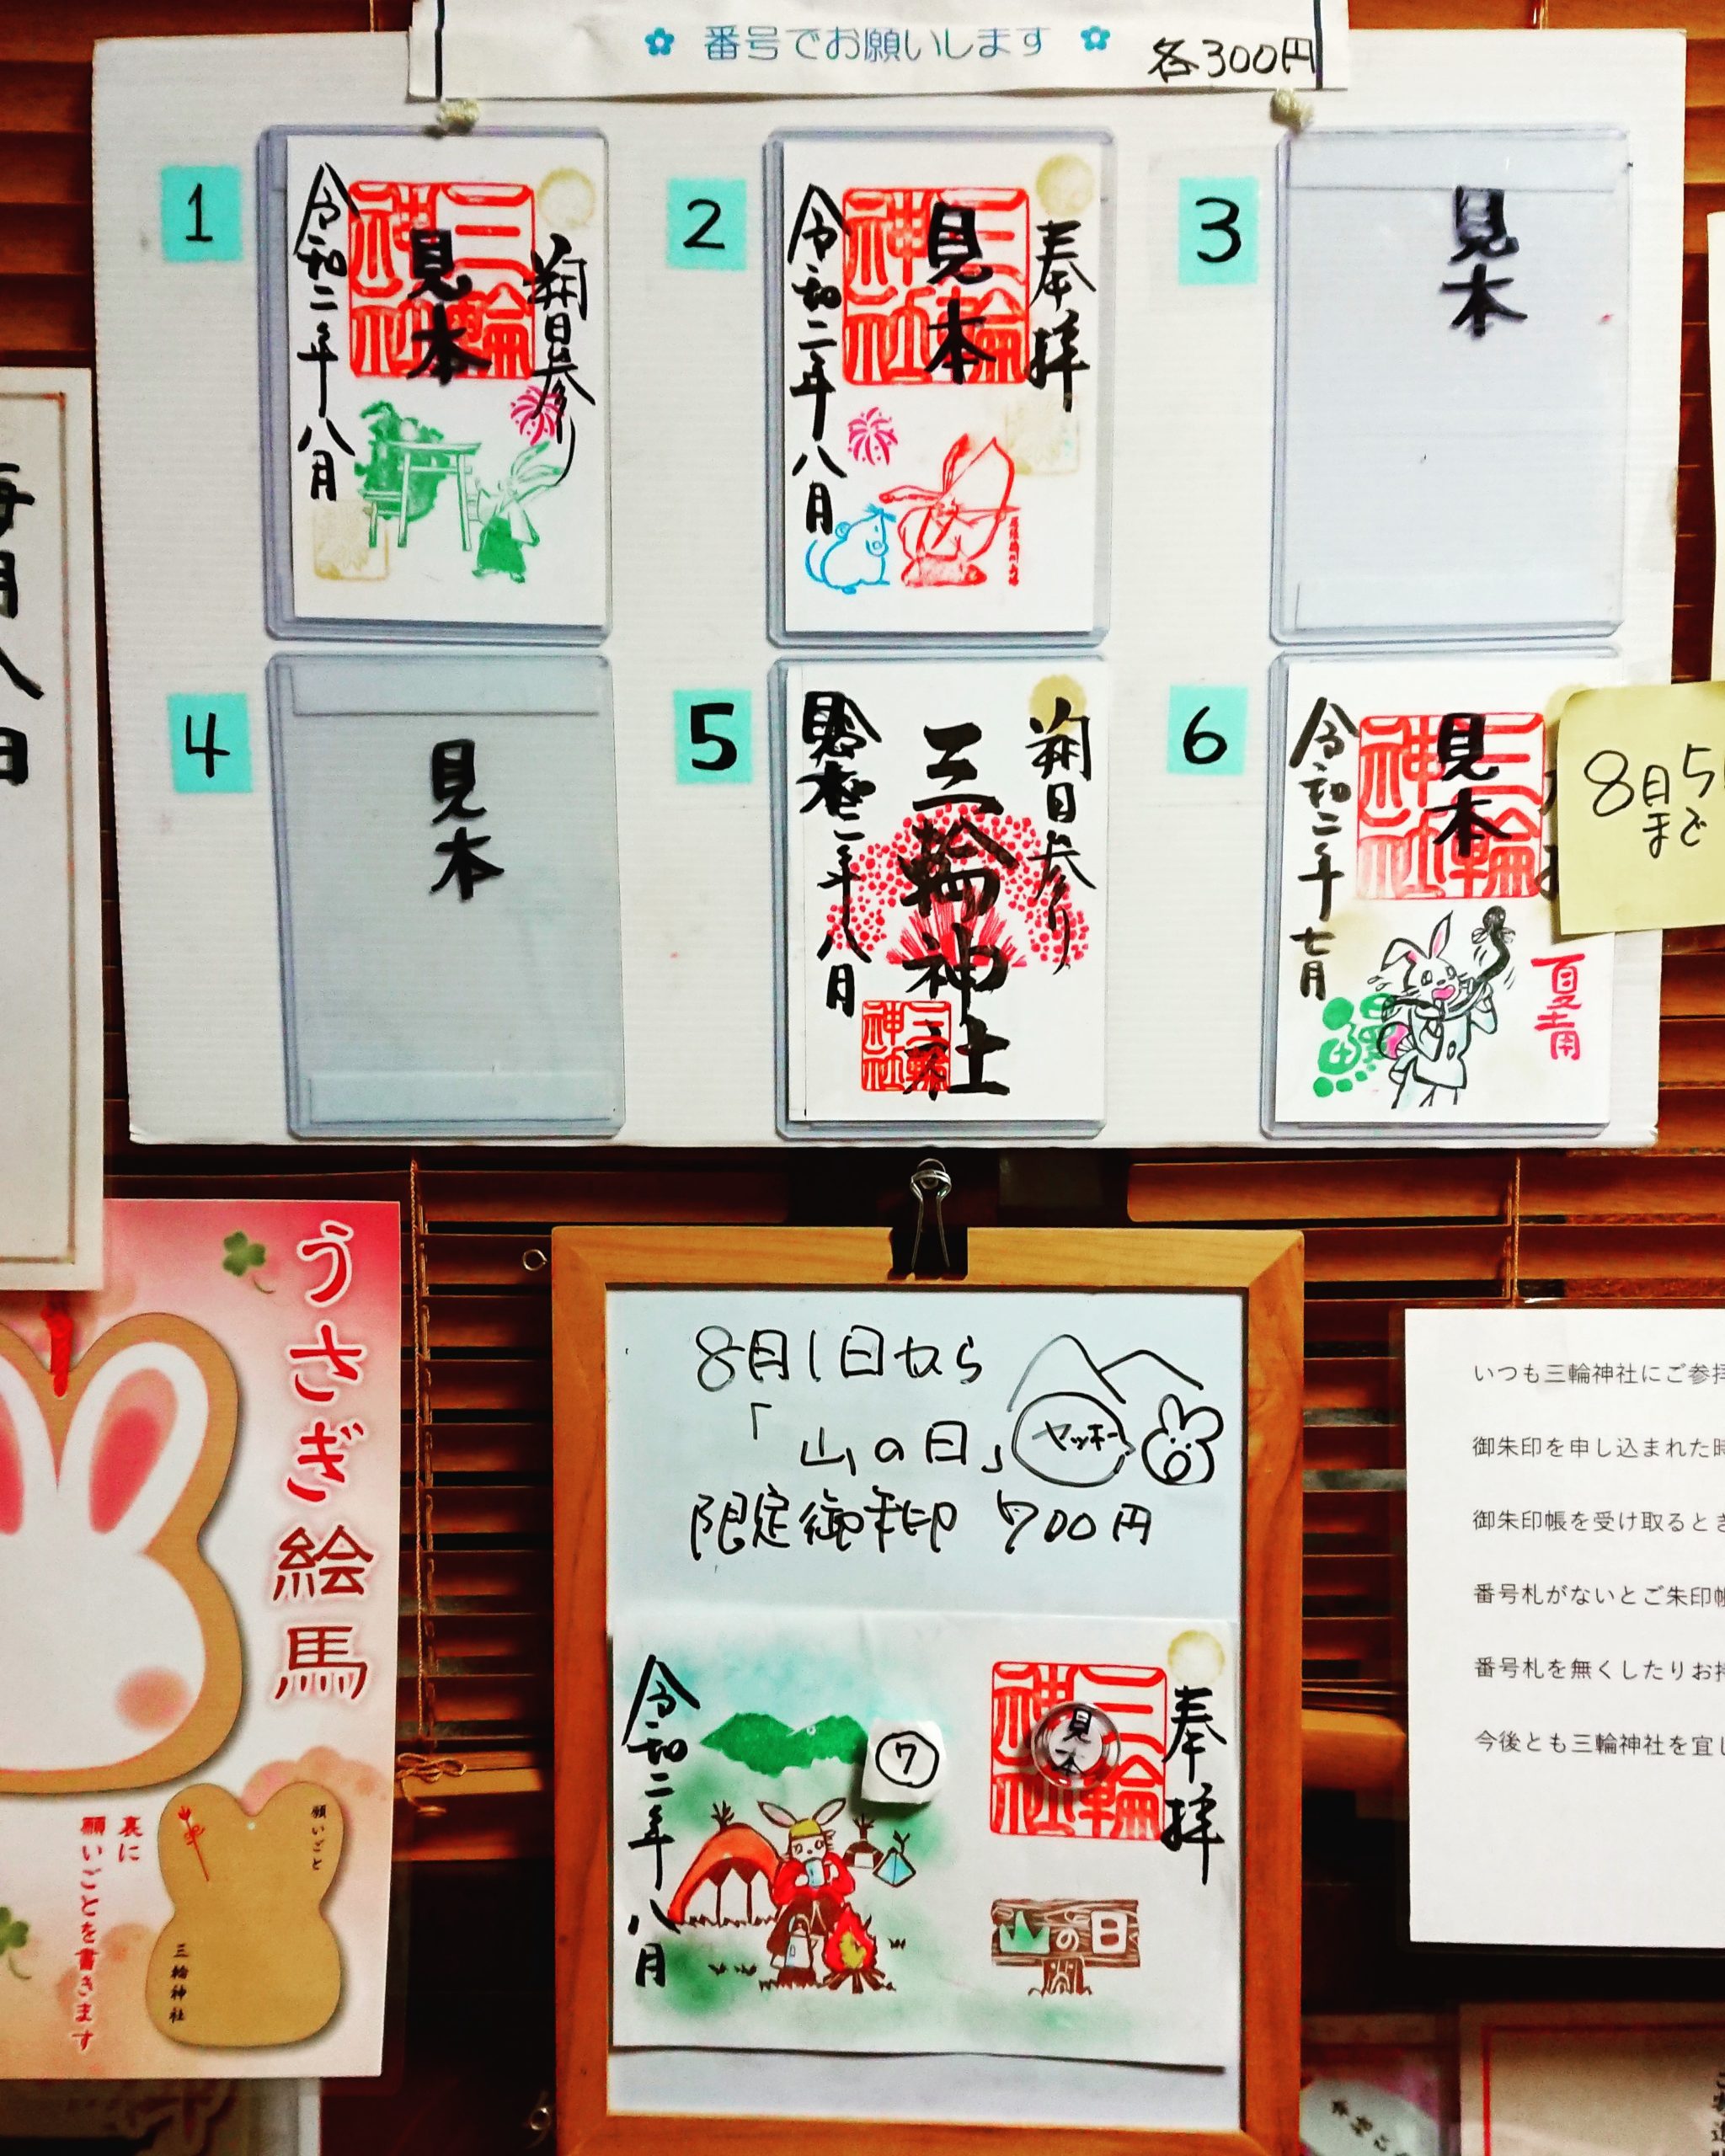 番号でお願いします
各300円
1
朔日参り
三輪神社
見本
令和二年八月
2
奉拝
三輪神社
見本
令和二年八月
3
見本
4
見本
5
朔日参り
三輪神社
三輪神社
二年八月
6
三輪神社
見本
令和二年七月
夏土用
8月5
まで
毎月八日
うさぎ絵馬
裏に
願いごとを書きます
願いごと
三輪神社
8月1日から
「山の日」
ヤッホー
限定御朱印 700円
奉拝
三輪神社
見本
7
山の日
令和二年八月
いつも三輪神社にご参拝
御朱印を申し込まれた時
御朱印帳を受け取るとき
番号札がないとご朱印帳
番号札を無くしたりお持
今後とも三輪神社を宜し